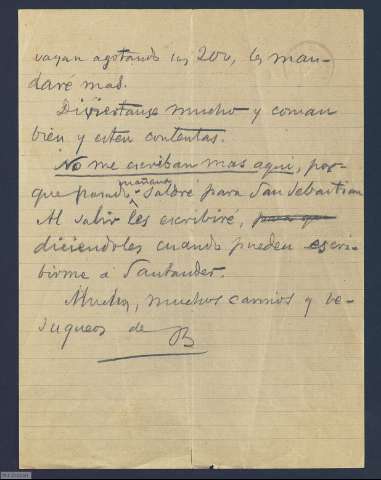 vayan agotando las 200, les man-
daré mas.
Diviertanse mucho y coman
bien y esten contentas.
No me escriban mas aqui, por-
que pasado mañana saldré para San Sebastian
Al salir les escribiré, para que
diciendoles cuando pueden escri-
birme á Santander.
Muchos, muchos cariños y be-
suqueos de
B